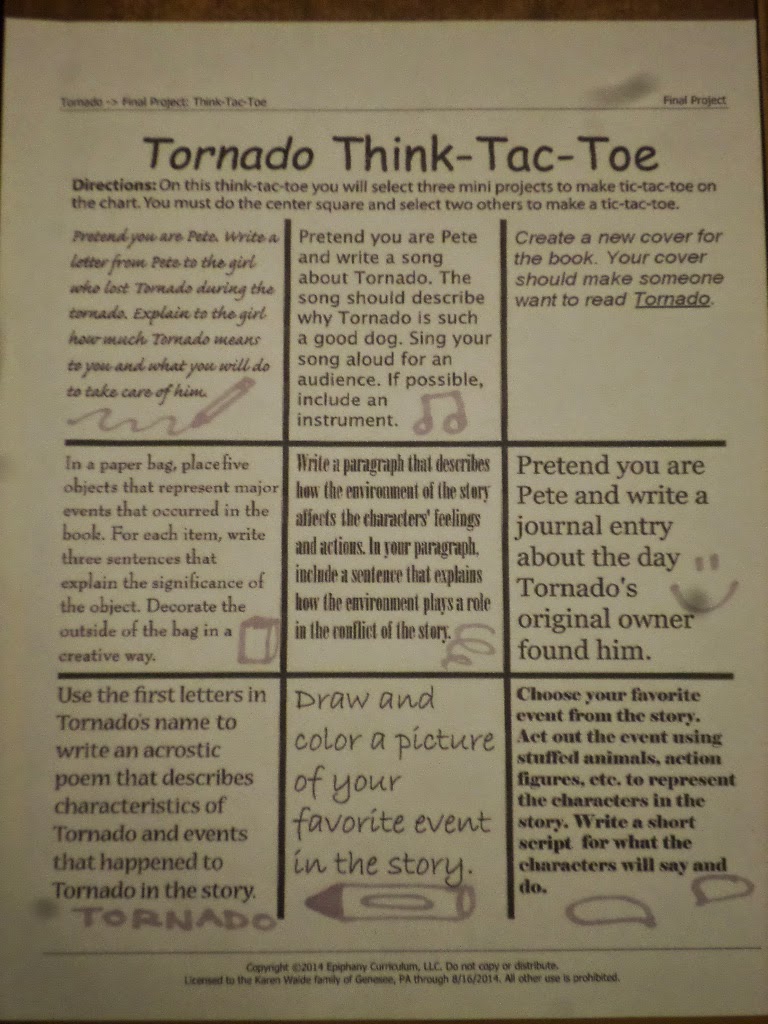 Tornado -> Final Project: Think-Tac-Toe
Final Project
Tornado Think-Tac-Toe
Directions: On this think-tac-toe you will select three mini projects to make tic-tac-toe on
the chart. You must do the center square and select two others to make a tic-tac-toe.
Pretend you are Pete. Write a
letter from Pete to the girl
who lost Tornado during the
tornado. Explain to the girl
how much Tornado means
to you and what you will do
to take care of him.
Pretend you are Pete
and write a song
about Tornado. The
song should describe
why Tornado is such
a good dog. Sing your
song aloud for an
audience. If possible,
include an
instrument.
Create a new cover for
the book. Your cover
should make someone
want to read Tornado.
In a paper bag, place five
objects that represent major
events that occurred in the
book. For each item, write
three sentences that
explain the significance of
the object. Decorate the
outside of the bag in a
creative way.
Write a paragraph that describes
how the environment of the story
affects the characters' feelings
and actions. In your paragraph,
include a sentence that explains
how the environment plays a role
in the conflict of the story.
Pretend you are
Pete and write a
journal entry
about the day
Tornado's
original owner
found him.
Use the first letters in
Tornado's name to
write an acrostic
poem that describes
characteristics of
Tornado and events
that happened to
Tornado in the story.
TORNADO
Draw and
color a picture
of your
favorite event
in the story.
Choose your favorite
event from the story.
Act out the event using
stuffed animals, action
figures, etc. to represent
the characters in the
story. Write a short
script for what the
characters will say and
do.
Copyright ©2014 Epiphany Curriculum, LLC. Do not copy or distribute.
Licensed to the Karen Waide family of Genesee, PA through 8/16/2014. All other use is prohibited.